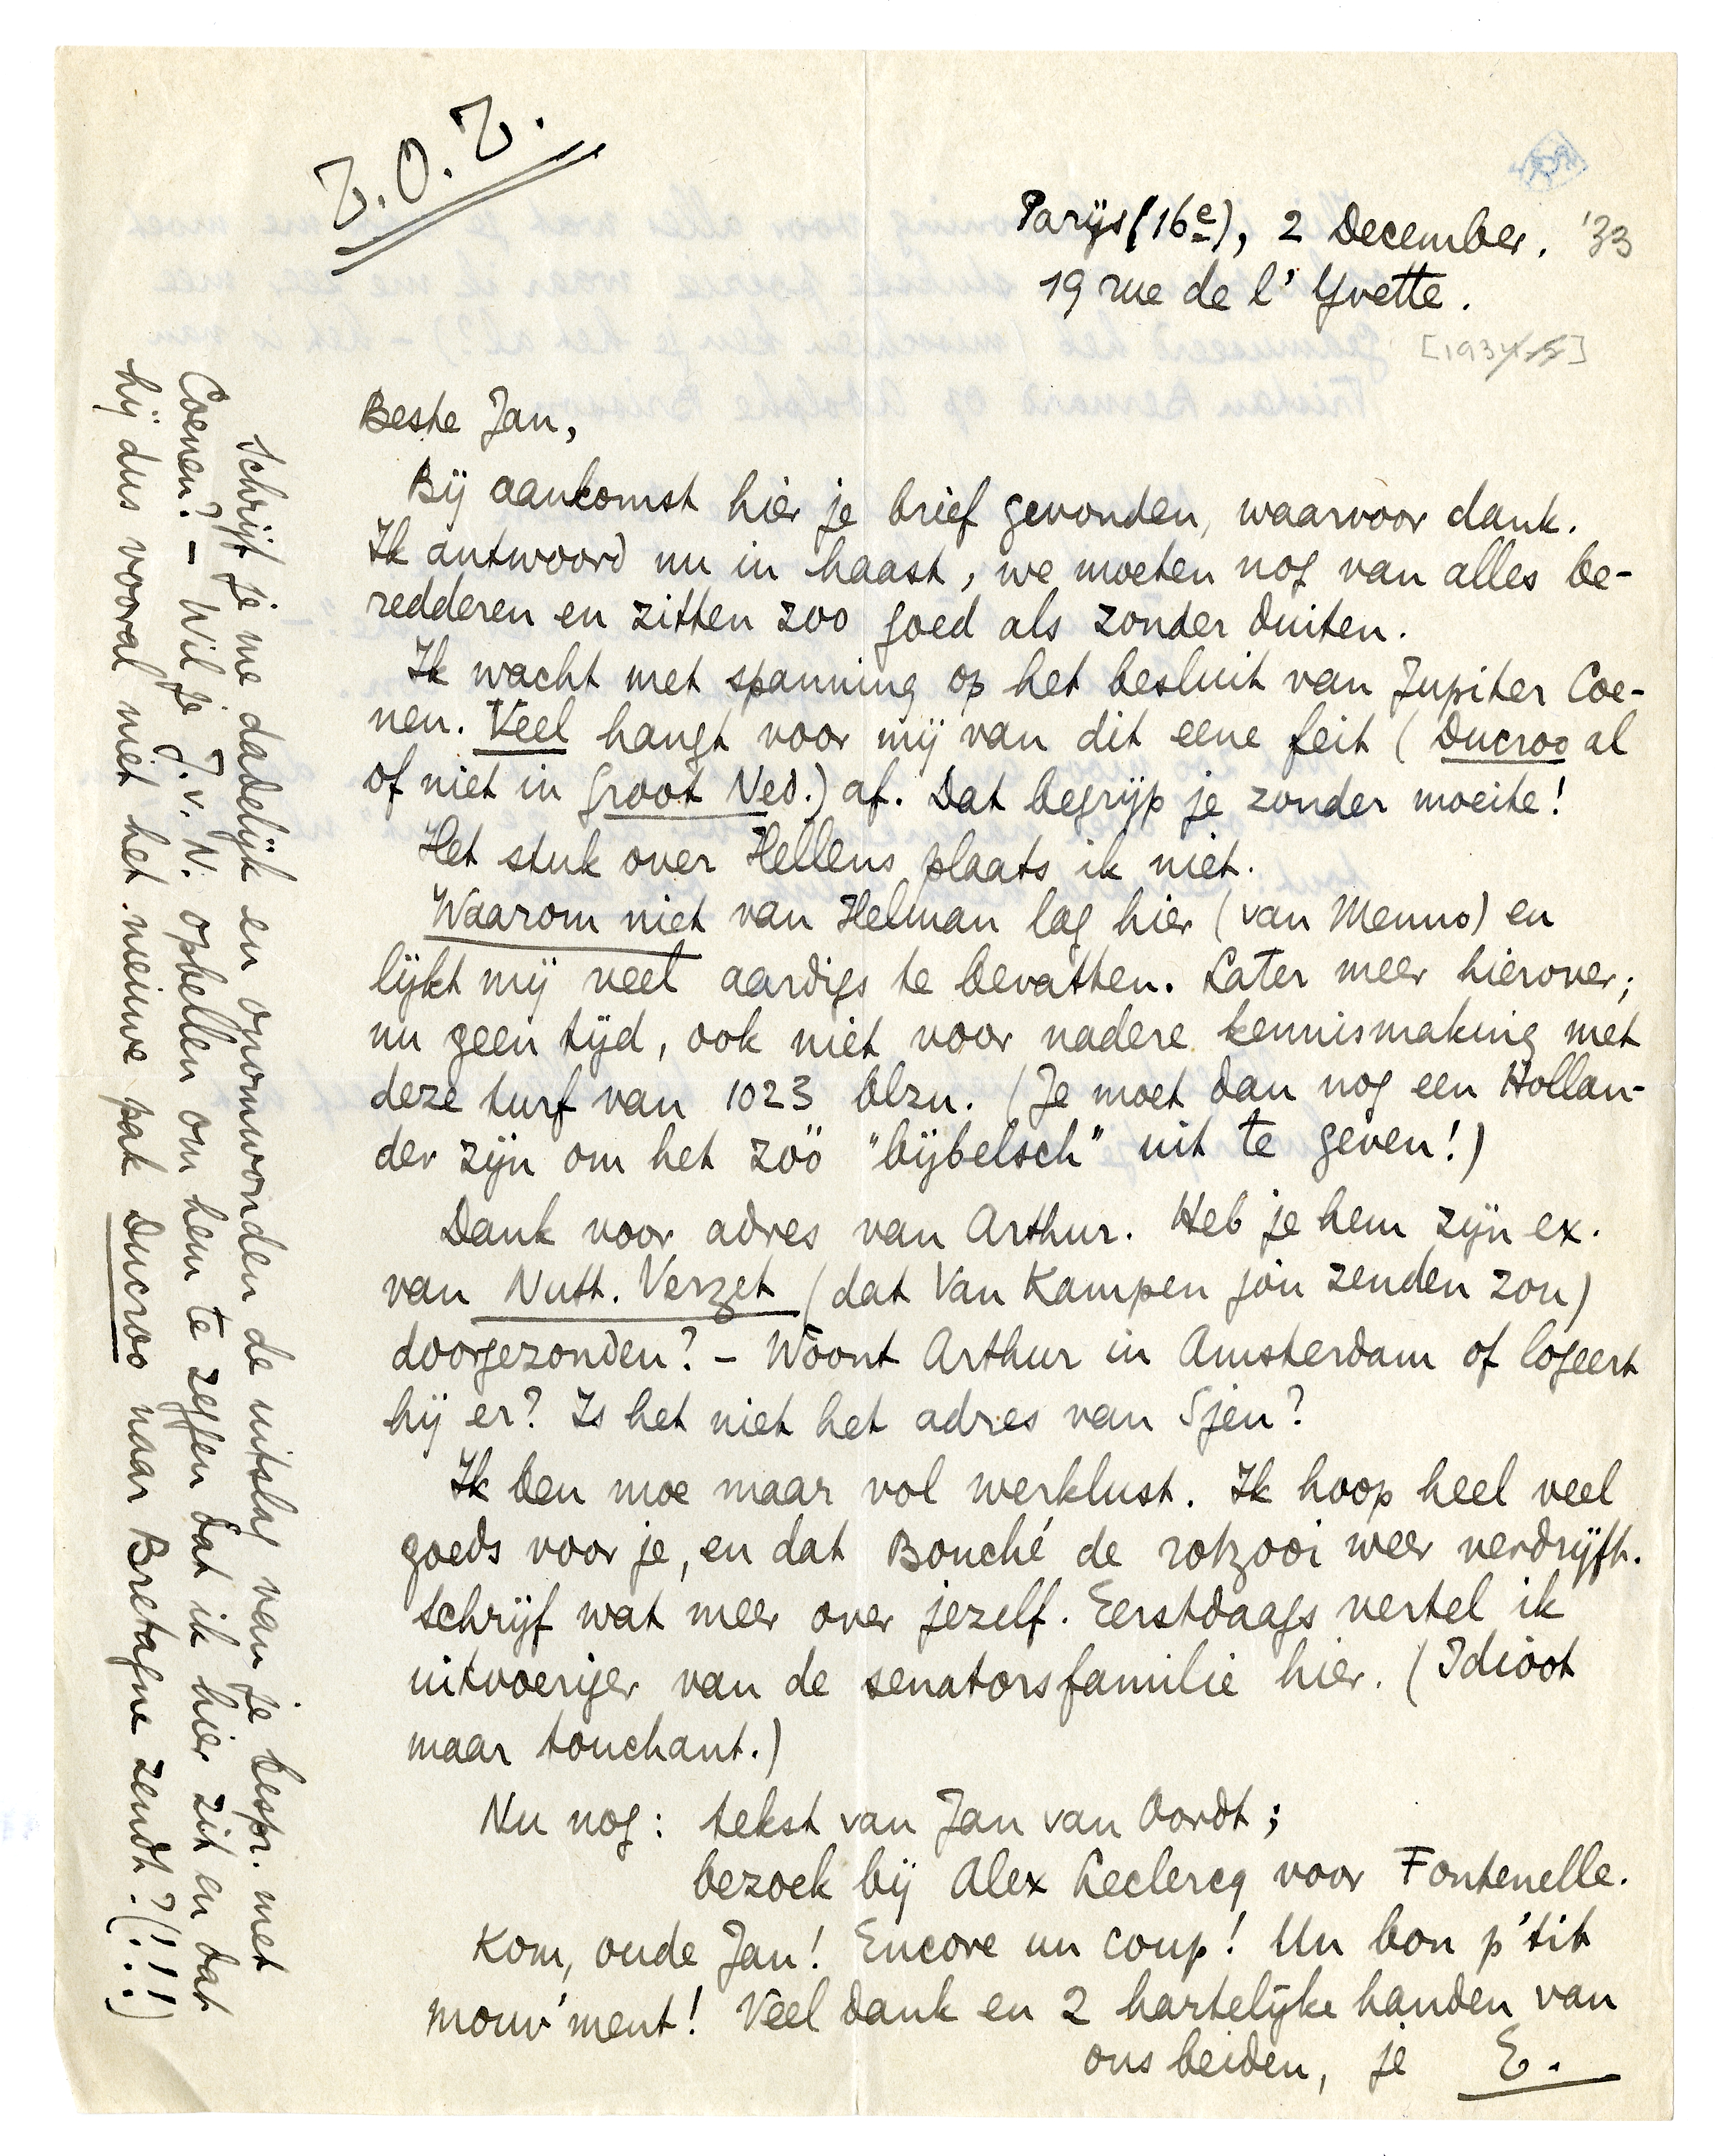 Z.O.Z.
Parijs (16e), 2 December. '33
19 rue de l'Yvette.
[1934-5]
Beste Jan,
Bij aankomst hier je brief gevonden, waarvoor dank.
Ik antwoord nu in haast, we moeten nog van alles be-
redderen en zitten zoo goed als zonder duiten.
Ik wacht met spanning op het besluit van Jupiter Coe-
nen. Veel hangt voor mij van dit eene feit (Ducroo al
of niet in Groot Ned.) af. Dat begrijp je zonder moeite!
Het stuk over Hellens plaats ik niet.
Waarom niet van Helman lag hier (van Menno) en
lijkt mij veel aardigs te bevatten. Later meer hierover;
nu geen tijd, ook niet voor nadere kennismaking met
deze turf van 1023 blzn. (Je moet dan nog een Hollan-
der zijn om het zóó "bijbelsch" uit te geven!)
Dank voor adres van Arthur. Heb je hem zijn ex.
van Nutt. Verzet (dat Van Kampen jou zenden zou)
doorgezonden? - Woont Arthur in Amsterdam of logeert
hij er? Is het niet het adres van Sjen?
Ik ben moe maar vol werklust. Ik hoop heel veel
goeds voor je, en dat Bouché de rotzooi weer verdrijft.
Schrijf wat meer over jezelf. Eerstdaags vertel ik
uitvoeriger van de senatorsfamilie hier. (Idioot
maar touchant.)
Nu nog: tekst van Jan van Oordt;
bezoek bij Alex Leclercq voor Fontenelle.
Kom, oude Jan! Encore un coup! Un bon p'tit
mouv'ment! Veel dank en 2 hartelijke handen van
ons beiden, je E.
Schrijf je me dadelijk en onomwonden de uitslag van je bespr. met
Coenen? - Wil je J.v.N. opbellen om hem te zeggen dat ik hier zit en dat
hij dus vooral niet het nieuwe pak Ducroo naar Bretagne zendt?(!!!)